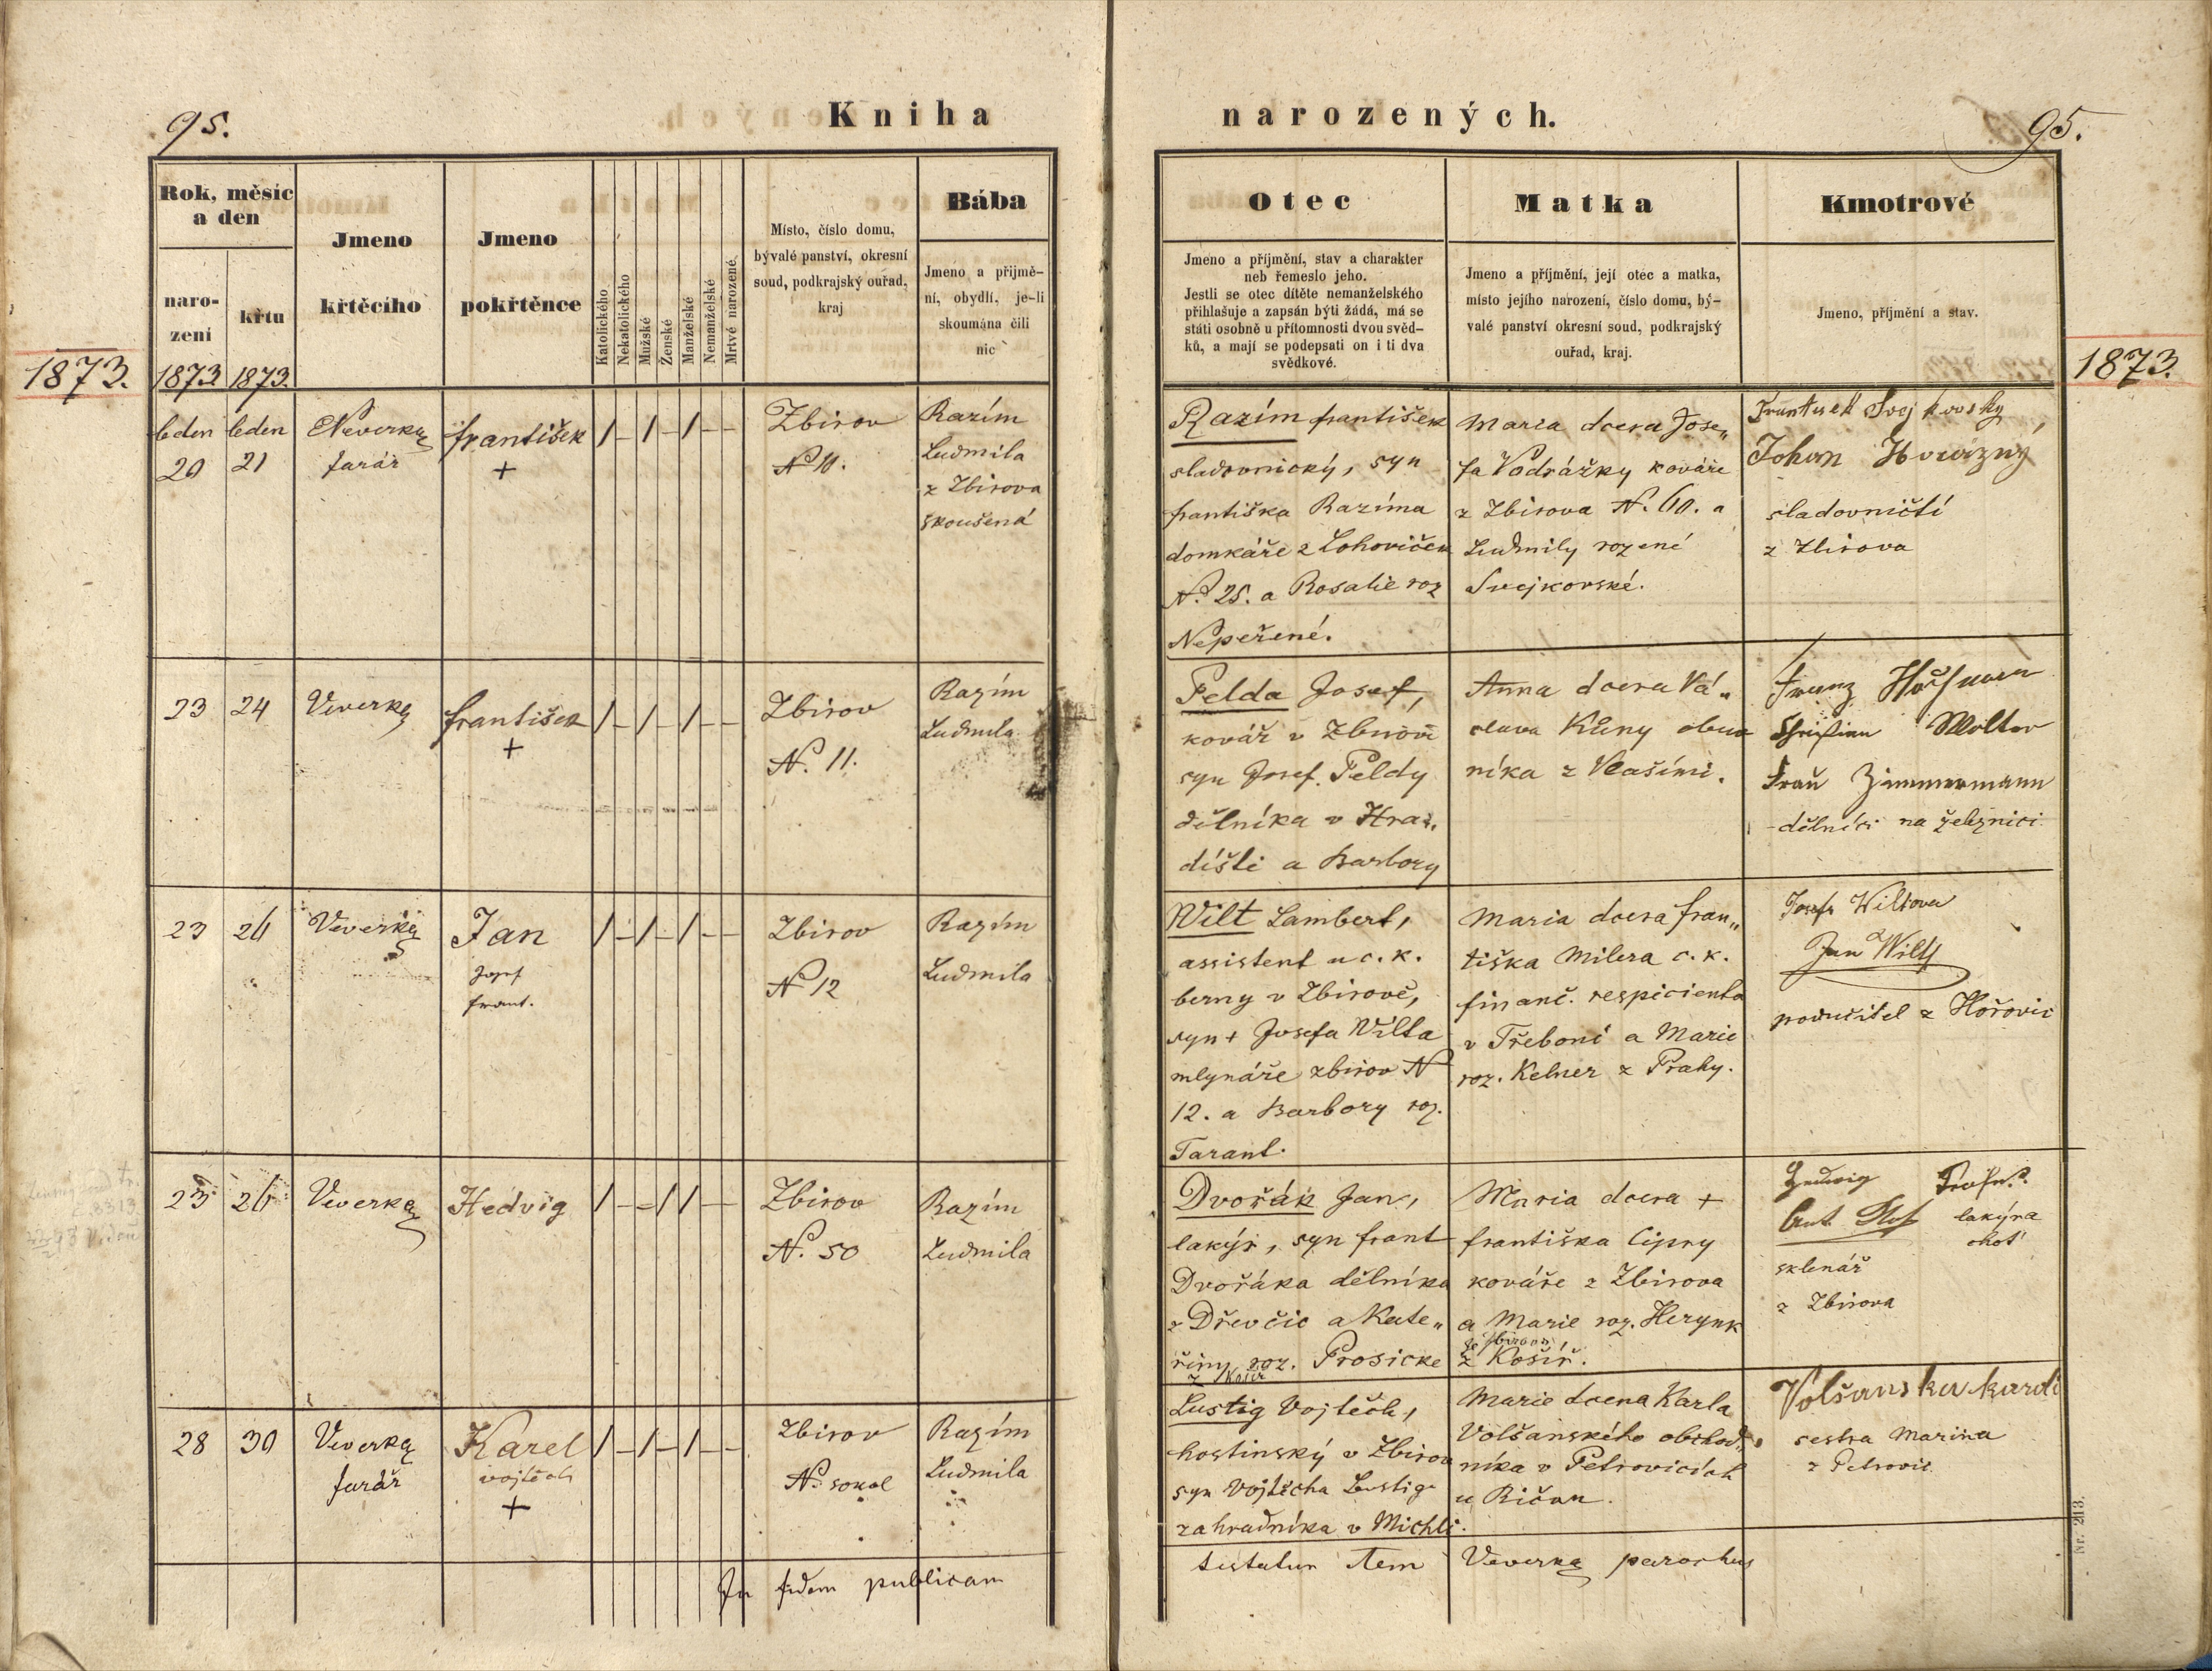 95.
Kniha
Rok, měsíc
a den
naro-
zení
křtu
Jmeno
křtěcího
Jmeno
pokřtěnce
Katolického
Nekatolického
Mužské
Ženské
Manželské
Nemanželské
Mrtvé narozené
Místo, číslo domu,
bývalé panství, okresní
soud, podkrajský ouřad,
kraj
Bába
Jmeno a přijmě-
ní, obydlí, je-li
skoumána čili
nic
1873.
1873 1873.
leden
20
leden
21
Veverka
farář
františek
+
/ – / – / – –
Zbirov
N 10.
Razím
Ludmila
z Zbirova
skoušená
23
24
Veverka
františek
+
/ – / – / – –
Zbirov
N. 11.
Razím
Ludmila
23
26
Veverka
Jan
Josef
frant.
/ – / – / – –
Zbirov
N 12
Razím
Ludmila
23
26
Veverka
Hedvig
/ – – / / – –
Zbirov
N. 50
Razím
Ludmila
28
30
Veverka
farář
Karel
vojtěch
+
/ – / – / – –
Zbirov
N. sokol
Razím
Ludmila
In fidem publicam
narozených.
95.
Otec
Jmeno a příjmění, stav a charakter
neb řemeslo jeho.
Jestli se otec dítěte nemanželského
přihlašuje a zapsán býti žádá, má se
státi osobně u přítomnosti dvou svěd-
ků, a mají se podepsati on i ti dva
svědkové.
Matka
Jmeno a příjmění, její otec a matka,
místo jejího narození, číslo domu, bý-
valé panství okresní soud, podkrajský
ouřad, kraj.
Kmotrové
Jmeno, příjmění a stav.
1873.
Razím františek
sladovnický, syn
františka Razíma
domkáře z Lohoviček
N. 25. a Rosalie roz
Nepeřené.
Maria dcera Jose„
fa Vodrážky kováře
z Zbirova N. 60. a
Ludmily rozené
Svejkovské.
František Svejkovsky
Johan
sladovničtí
z Zbirova
Pelda Josef,
kovář v Zbirově
syn Josef. Peldy
dělníka v Hra„
dišti a Barbory
Anna dcera Vá„
slava Kůny obuv
níka z Vlašimi.
Franz
Wolter
Frau Zimmermann
dělníci na železnici
Wilt Lambert,
assistent u c. k.
berny v Zbirově,
syn + Josefa Wilta
mlynáře zbirov N
12. a Barbory roz.
Tarant.
Maria dcera fran„
tiška Milera c. k.
finanč. respicienta
v Třeboni a Marie
roz. Kelner z Prahy.
Josefa Wiltova
Jan Wilt
podučitel z Hořovic
Dvořák Jan,
lakýr, syn frant
Dvořáka dělníka
z Dřevčic a Kate„
řiny roz. Prosicke
z Košíř
Maria dcera +
františka Cipry
kováře z Zbirova
a Marie roz. Herynk
ze Zbirova
z Košíř.
Hedwig
Ant.
lakýra
choť
sklenář
z Zbirova
Lustig Vojtěch,
hostinský v Zbirov
syn Vojtěcha Lustig
zahradníka v Michli.
Marie dcera Karla
Volšanského obchod„
níka v Petrovicích
u Řičan.
Volšanska
sestra Matina
z Petrovic
testatur Item Veverka parochus
Nr. 213.